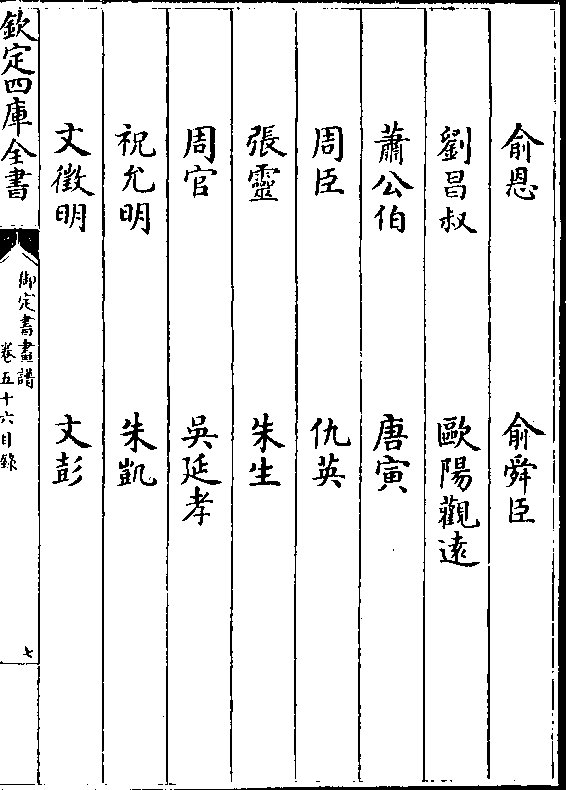 俞恩　俞舜臣
劉昌叔　歐陽觀遠
蕭公伯　唐寅
周臣　仇英
張靈　朱生
周官　吳延孝
祝允明　朱凱
文徵明　文彭
欽定四庫全書
御定書畫譜
卷五十六目錄
七